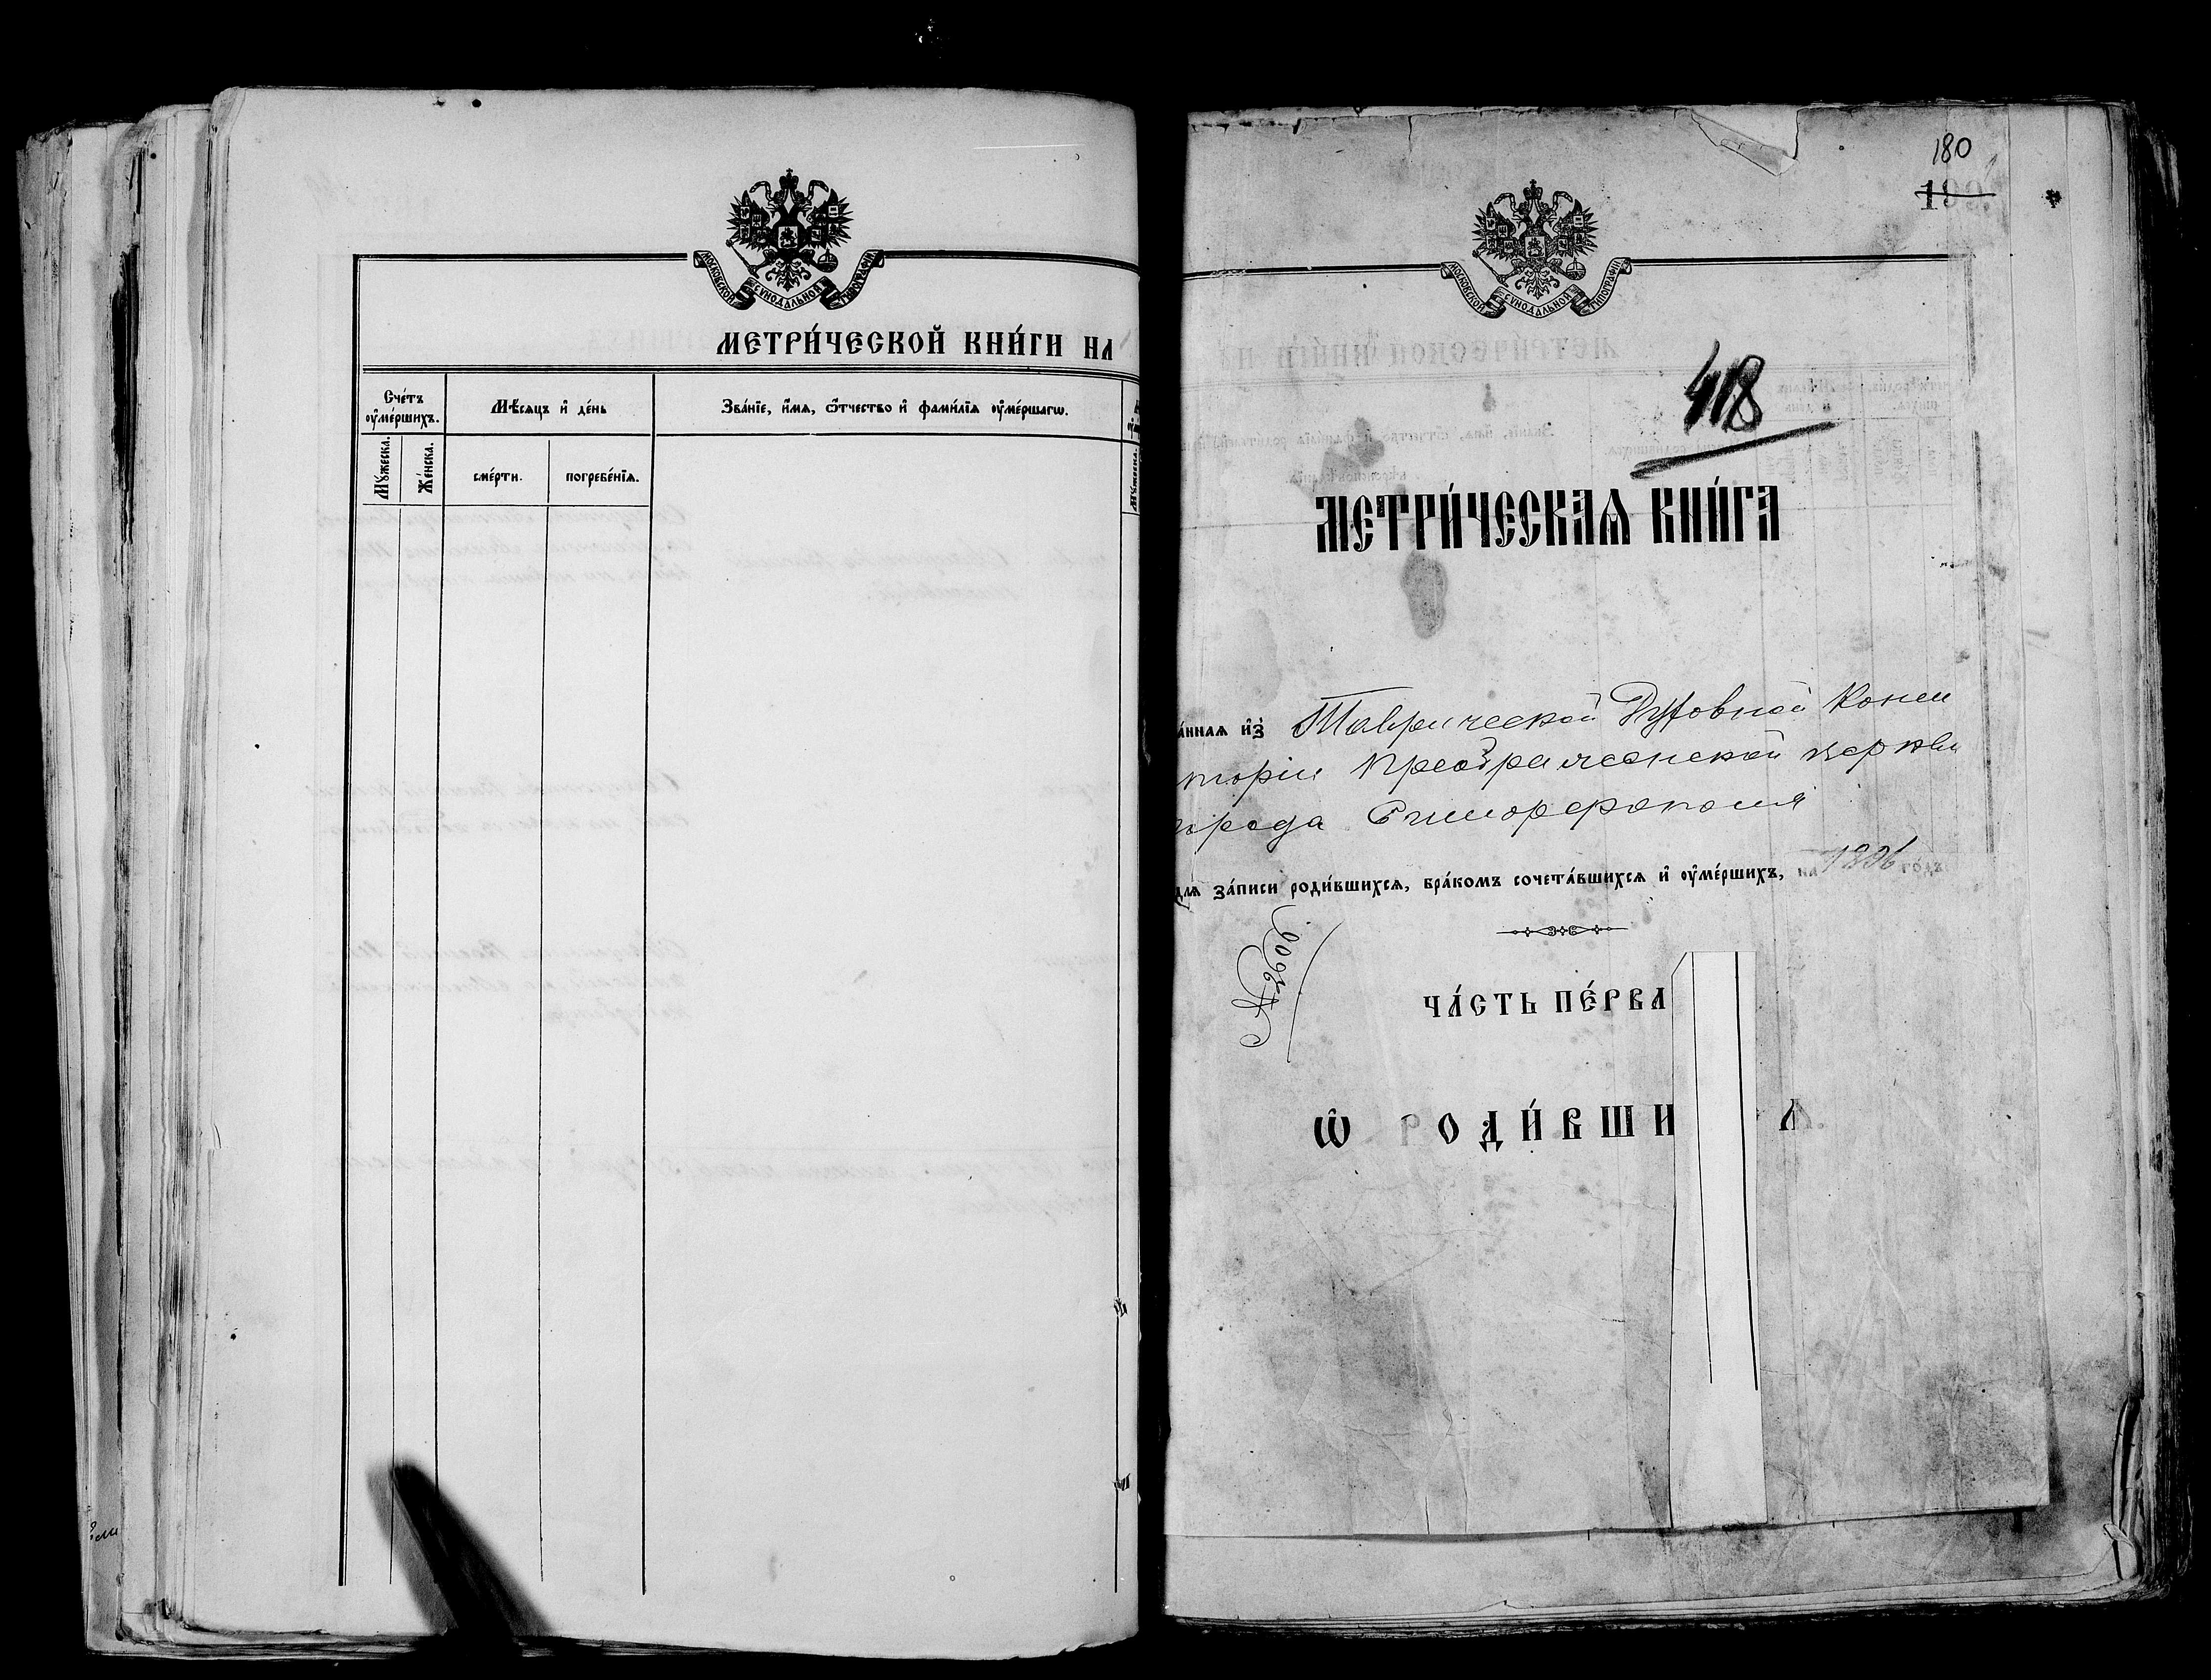 МОСКОВСКОЙ СѴНОДАЛЬНОЙ ТИПОГРАФІИ
МЕТРИ́ЧЕСКОЙ КНИ́ГИ НА
Сче́тъ ѹ҆ме́ршихъ.
Мѣ́сяцъ и҆ де́нь
Зва́нїе, и҆́мѧ, ѻ҆́тчество и҆ фами́лїѧ ѹ҆ме́ршагѡ.
Мꙋ́жеска.
Же́нска.
сме́рти.
погребе́нїѧ.
Мꙋ́жеска.
180
190
МОСКОВСКОЙ СѴНОДАЛЬНОЙ ТИПОГРАФІИ
418
МЕТРИ́ЧЕСКАѦ КНИ́ГА
а́ннаѧ и҆з̾ Таврической Духовной Конси
торіи Преображенской церкви
города Симферополя
для за́писи роди́вшихсѧ, бра́комъ сочета́вшихсѧ и҆ ѹ҆ме́ршихъ, на 1896 го́дъ
ЧА́СТЬ ПЕ́РВА
Ѡ҆ РОДИ́ВШИ Ѧ.